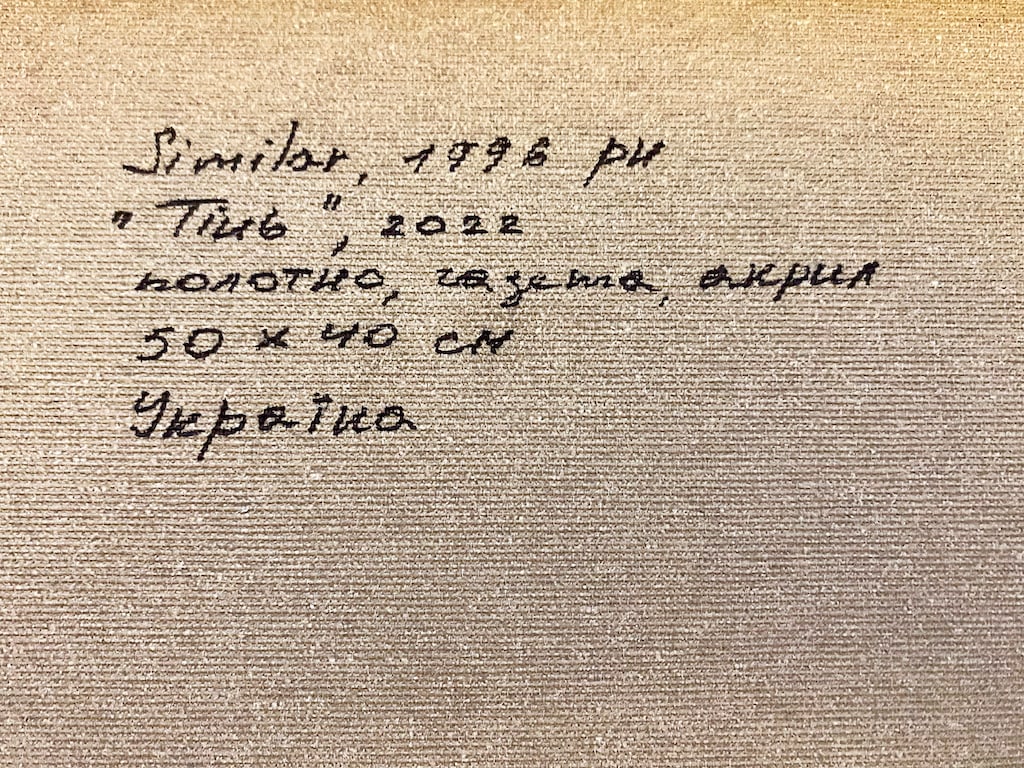 Similar, 1996 рн
"Тінь", 2022
полотно, газета, акрил
50 x 40 см
Україна